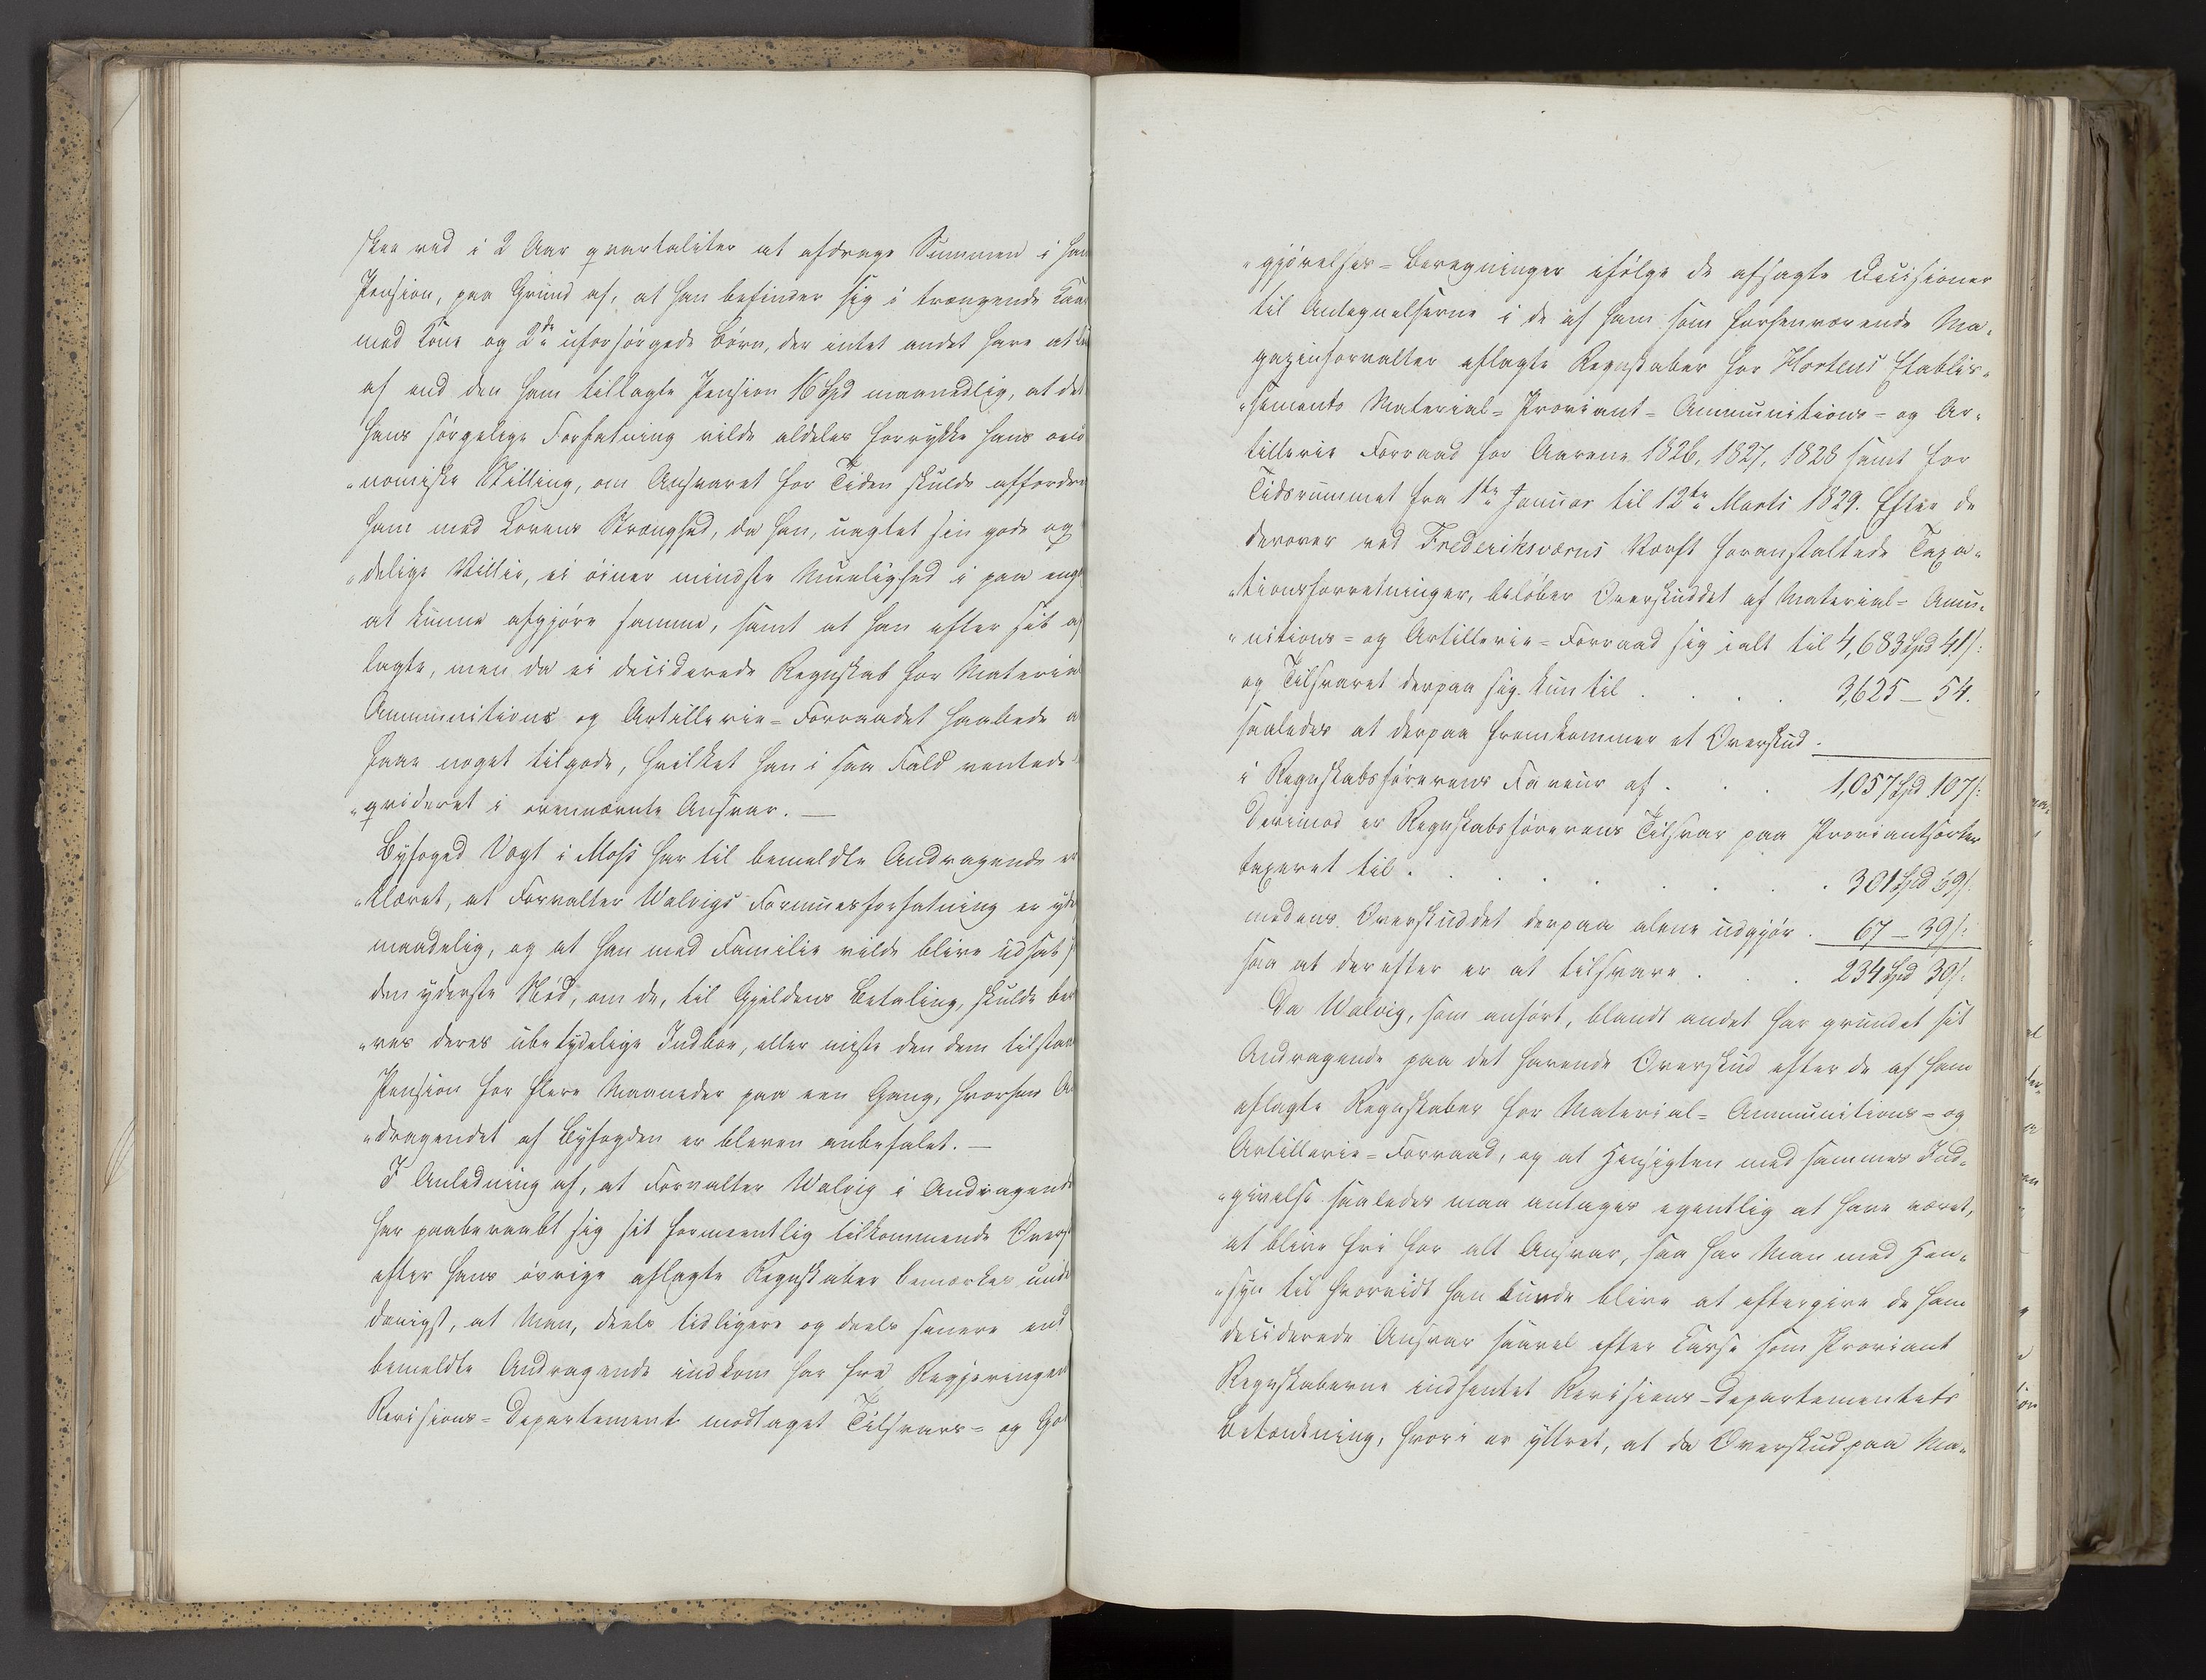 skee ved i 2 Aar qvartaliter at afdrage Summen i han
Pension, paa Grund af, at han befinder sig i trængende Kaar
med Kone og 2de uforsørgede Børn, der intet andet have at le
af end den ham tillagte Pension 16 Spd maanedlig, at det
hans sørgelige Forfatning vilde aldeles forrykke hans oeco
"nomiske Stilling, om Ansvaret for Tiden skulde affordre
ham med Lovens Strænghed, da han, uagtet sin gode og
"delige Villie, ei øiner mindste Muelighed i paa eng
at kunne afgjøre samme, samt at han efter sit af
lagte, men da ei deciderede Regnskab for Material
Ammunitions og Artillerie-Forraadet haabede a
have noget tilgode, hvilket han i saa Fald ventede
"qvideret i ovennævnte Ansvar. —
Byfoged Vogt i Moss har til bemeldte Andragende er
"klæret, at Forvalter Walvigs Formuesforfatning er yde
maadelig, og at han med Familie vilde blive udsat f
den yderste Nød, om de, til Gjeldens Betaling, skulde be
"ves deres ubetydelige Indboe, eller miste den dem tilstaae
Pension for flere Maaneder paa een Gang, hvorfor A
"dragendet af Byfogden er bleven anbefalet. —
I Anledning af, at Forvalter Walvig i Andragende
har paaberaabt sig sit formeentlig tilkommende Overs
efter hans øvrige aflagte Regnskaber bemærkes unde
danigst, at Man, deels tidligere og deels senere end
bemeldte Andragende indkom har fra Regjeringen
Revisions-Departement modtaget Tilsvars- og Go
"gjørelses-Beregninger ifølge de afsagte Decisioner
til Antegnelserne i de af ham som forhenværende Ma-
gazinforvalter aflagte Regnskaber for Hortens Etablis-
"sements Material- Proviant- Ammunitions- og Ar-
tillerie Forraad for Aarene 1826, 1827, 1828 samt for
Tidsrummet fra 1te Januar til 12te Marts 1829. Efter de
derover ved Frederiksværns Værft foranstaltede Taxa-
"tionsforretninger, beløber Overskuddet af Material- Amu-
"nitions- og Artillerie-Forraad sig ialt til 4,683 Spd 41 s:
og Tilsvaret derpaa sig kun til . . . 3,625 — 54.
saaledes at derpaa fremkommer et Overskud .
i Regnskabsførerens Faveur af . . . 1,057 Spd 107 s:
Derimod er Regnskabsførerens Tilsvar paa Proviantsorter
taxeret til . . . . . . . 301 Spd 69 s:
medens Overskuddet derpaa alene udgjør . 67 — 39 s:
saa at derefter er at tilsvare . . . 234 Spd 30 s:
Da Walvig, som anført, blandt andet har grundet sit
Andragende paa det havende Overskud efter de af ham
aflagte Regnskaber for Material- Ammunitions- og
Artillerie-Forraad, og at Hensigten med sammes Ind-
"givelse saaledes maa antages egentlig at have været,
at blive fri for alt Ansvar, saa har Man med Hen-
"syn til hvorvidt han burde blive at eftergive de ham
deciderede Ansvar saavel efter Casse som Proviant
Regnskaberne indhentet Revisions-Departementets
Betænkning, hvori er yttret, at da Overskud paa Ma-